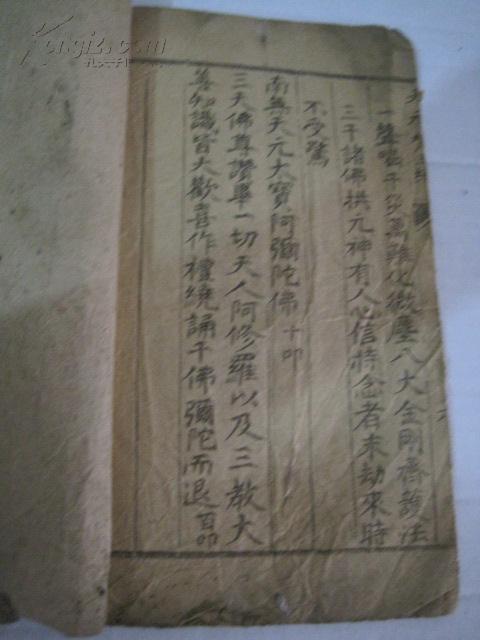 一聲喝千災萬難化微塵八大金剛齊護法
三千諸佛拱元神有人心信持念者末劫來時
不受驚
南無天元太寶阿彌陀佛 十叩
三天佛尊讚畢一切天人阿修羅以及三教大
善知識皆大歡喜作禮繞誦千佛彌陀而退 百叩
Kongfz.com
孔夫子旧书网